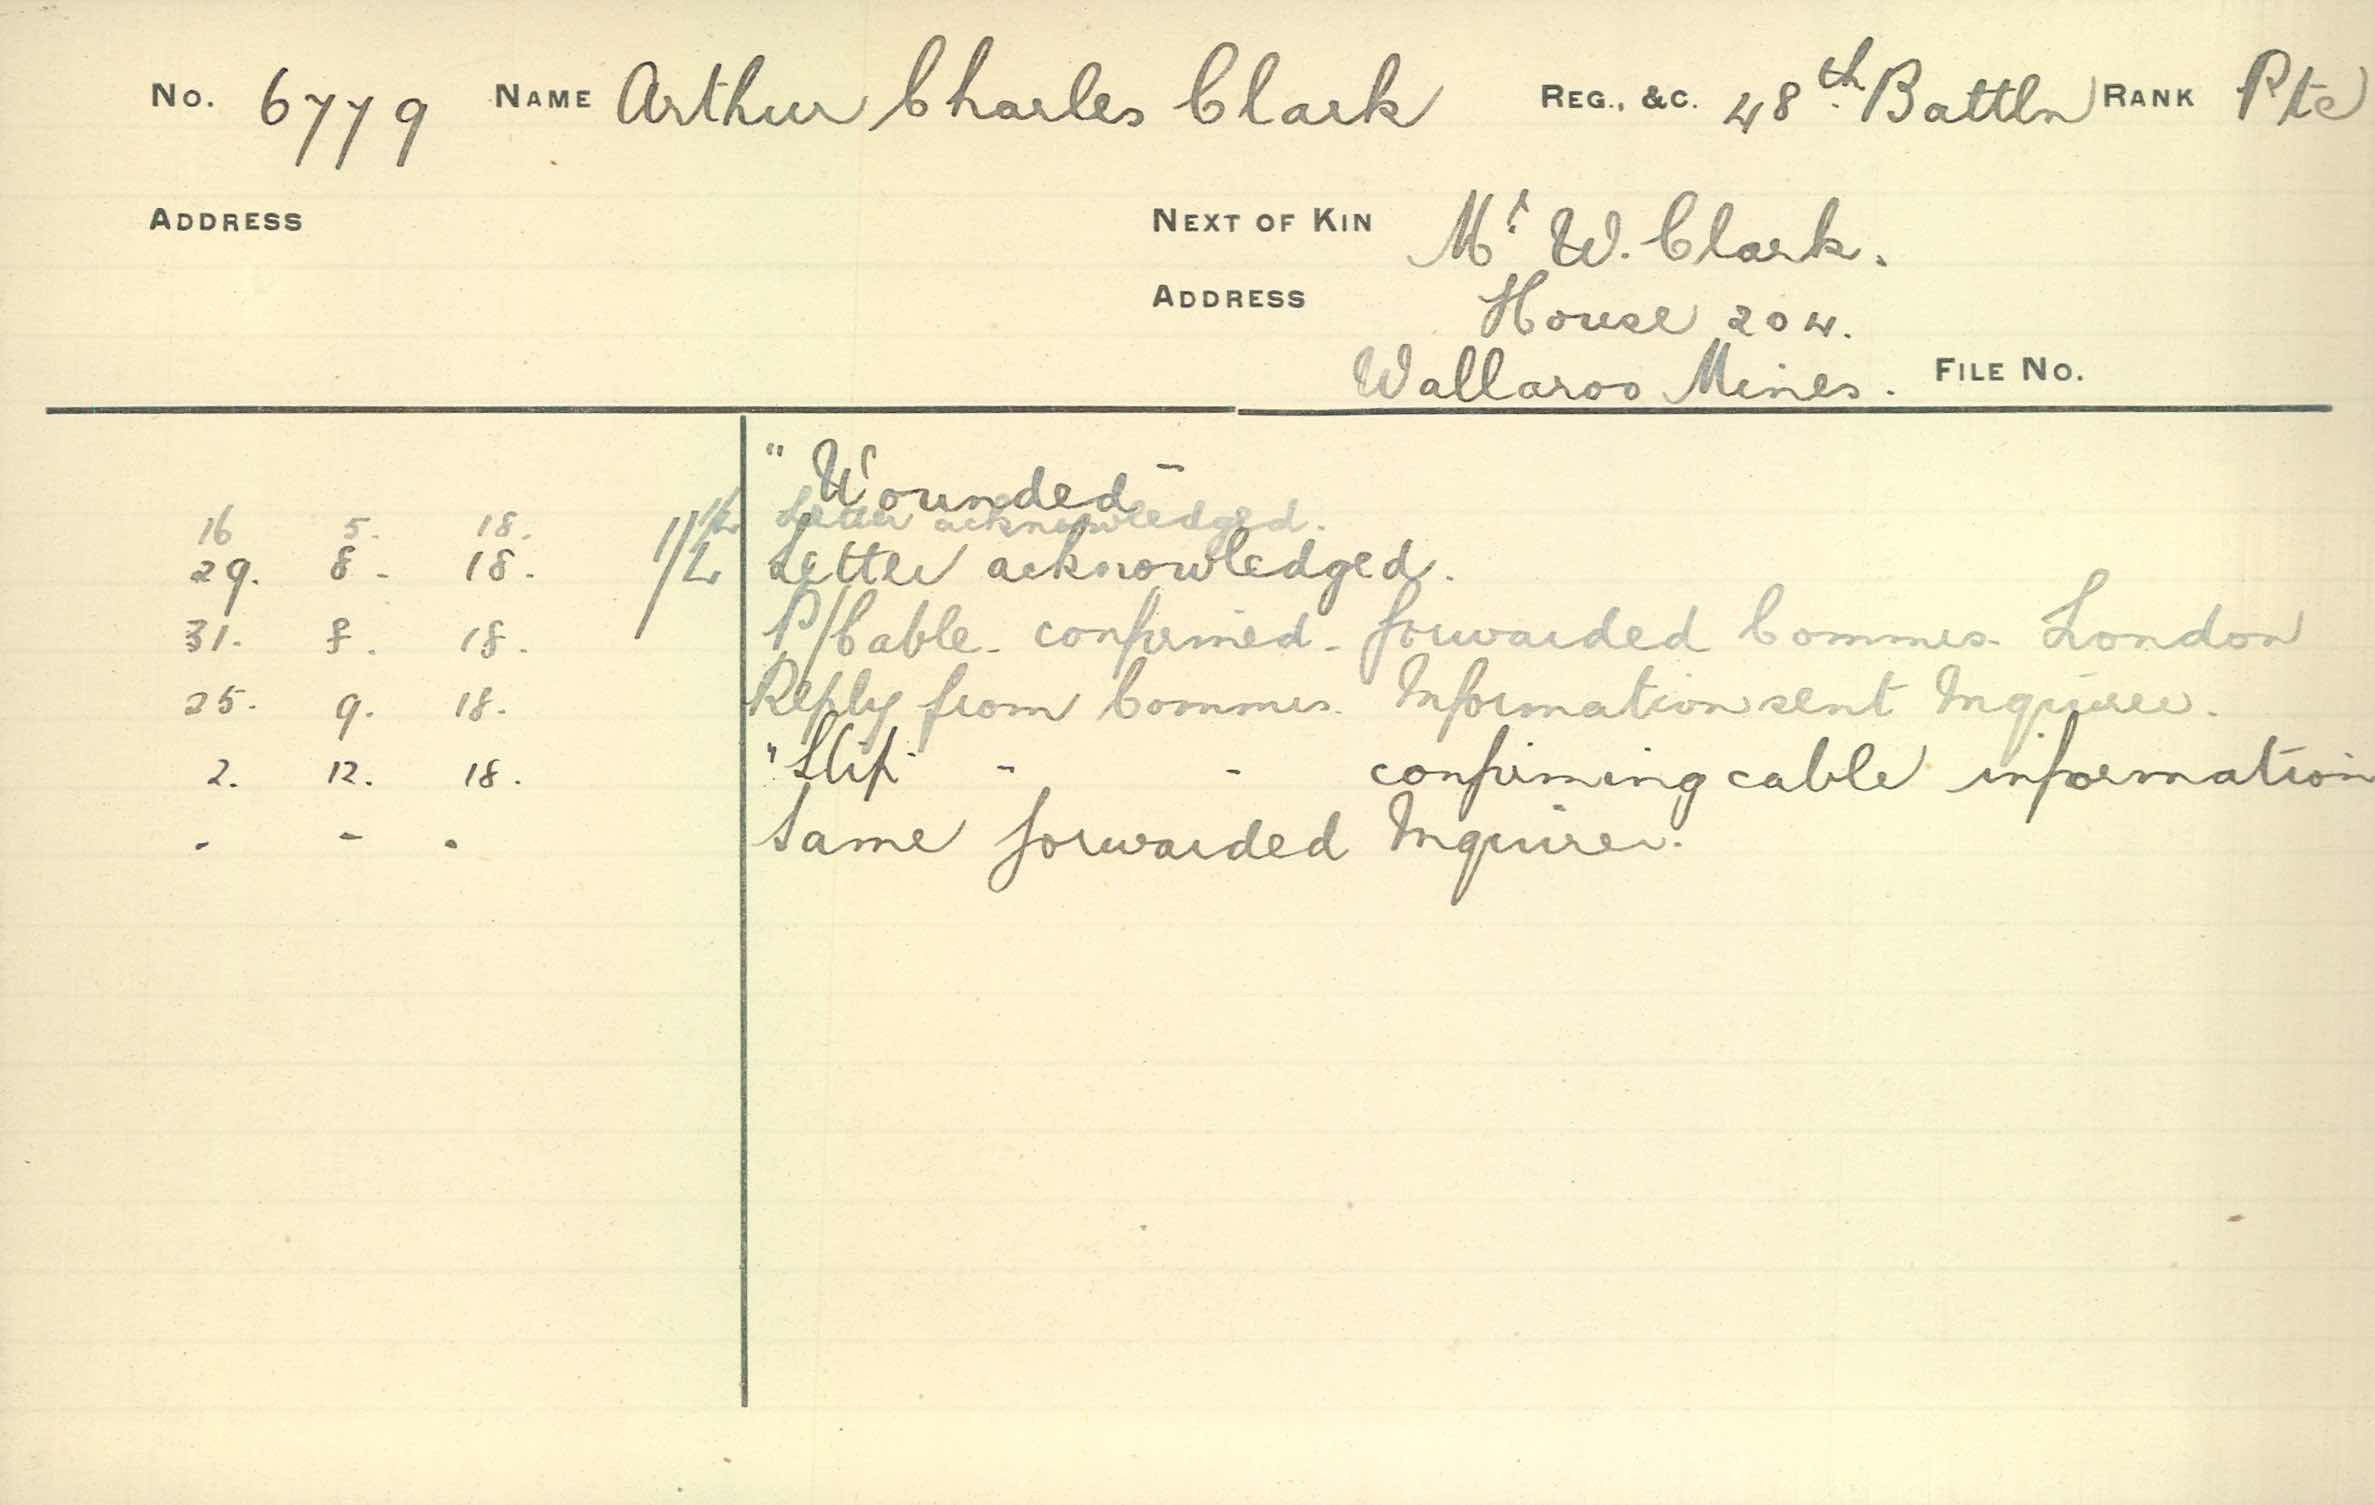 No. 6779 NAME Arthur Charles Clark REG., &C. 48th Battln RANK Pte
ADDRESS NEXT OF KIN Mr W. Clark.
ADDRESS House 204.
Wallaroo Mines. FILE No.
"Wounded"
16 5. 18. Letter acknowledged.
29. 8. 18. Letter acknowledged.
31. 8. 18. P/Cable. confirmed. forwarded Commis. London
25. 9. 18. Reply from Commis. Information sent Inquirer.
2. 12. 18. "Slip " " confirming cable information
. - . Same forwarded Inquirer.